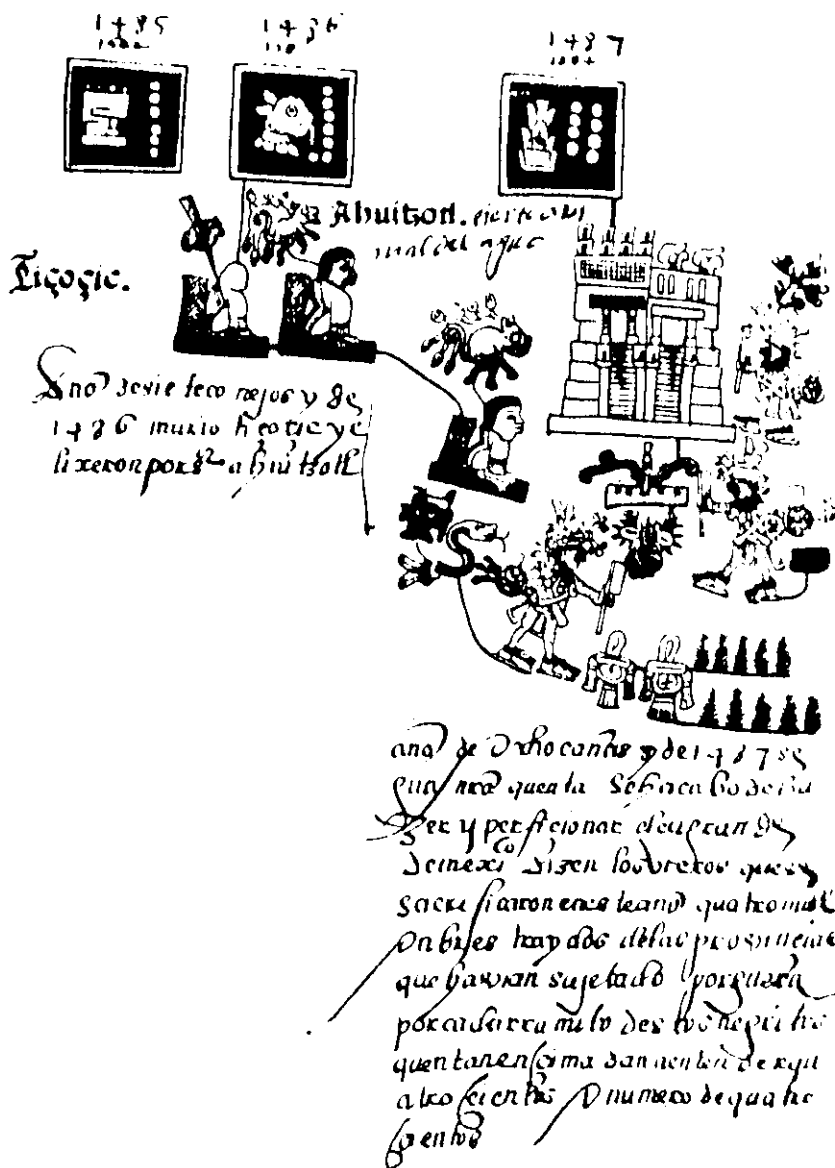 1485
1486
1487
Ahuitzotl.
mal del agua
Tiçoçic.
Año de siete conejos y de
1486 murio tiçoçic y e
lixeron por sr a ahuitzotl
año de ocho cañas y de 1487 se
gun nra quenta Se acabo de ha
zer y perficionar el cu grande
de mexico dizen los viejos que se
sacrificaron en este año quatro mil
onbres traydos de las provincias
que havian sujetado por guerra
por cada rramito destos negritos
que estan ençima dan a entender qu
atro çientos numero de quatro
çientos